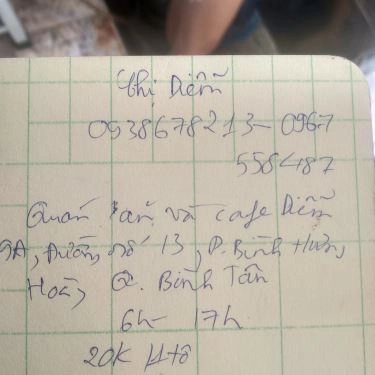 Chị Diễm
0938678213 - 0967
558487
Quán ăn và cafe Diễm
9A, Đường số 13, P. Bình Hưng
Hoà, Q. Bình Tân
6h - 17h
20K